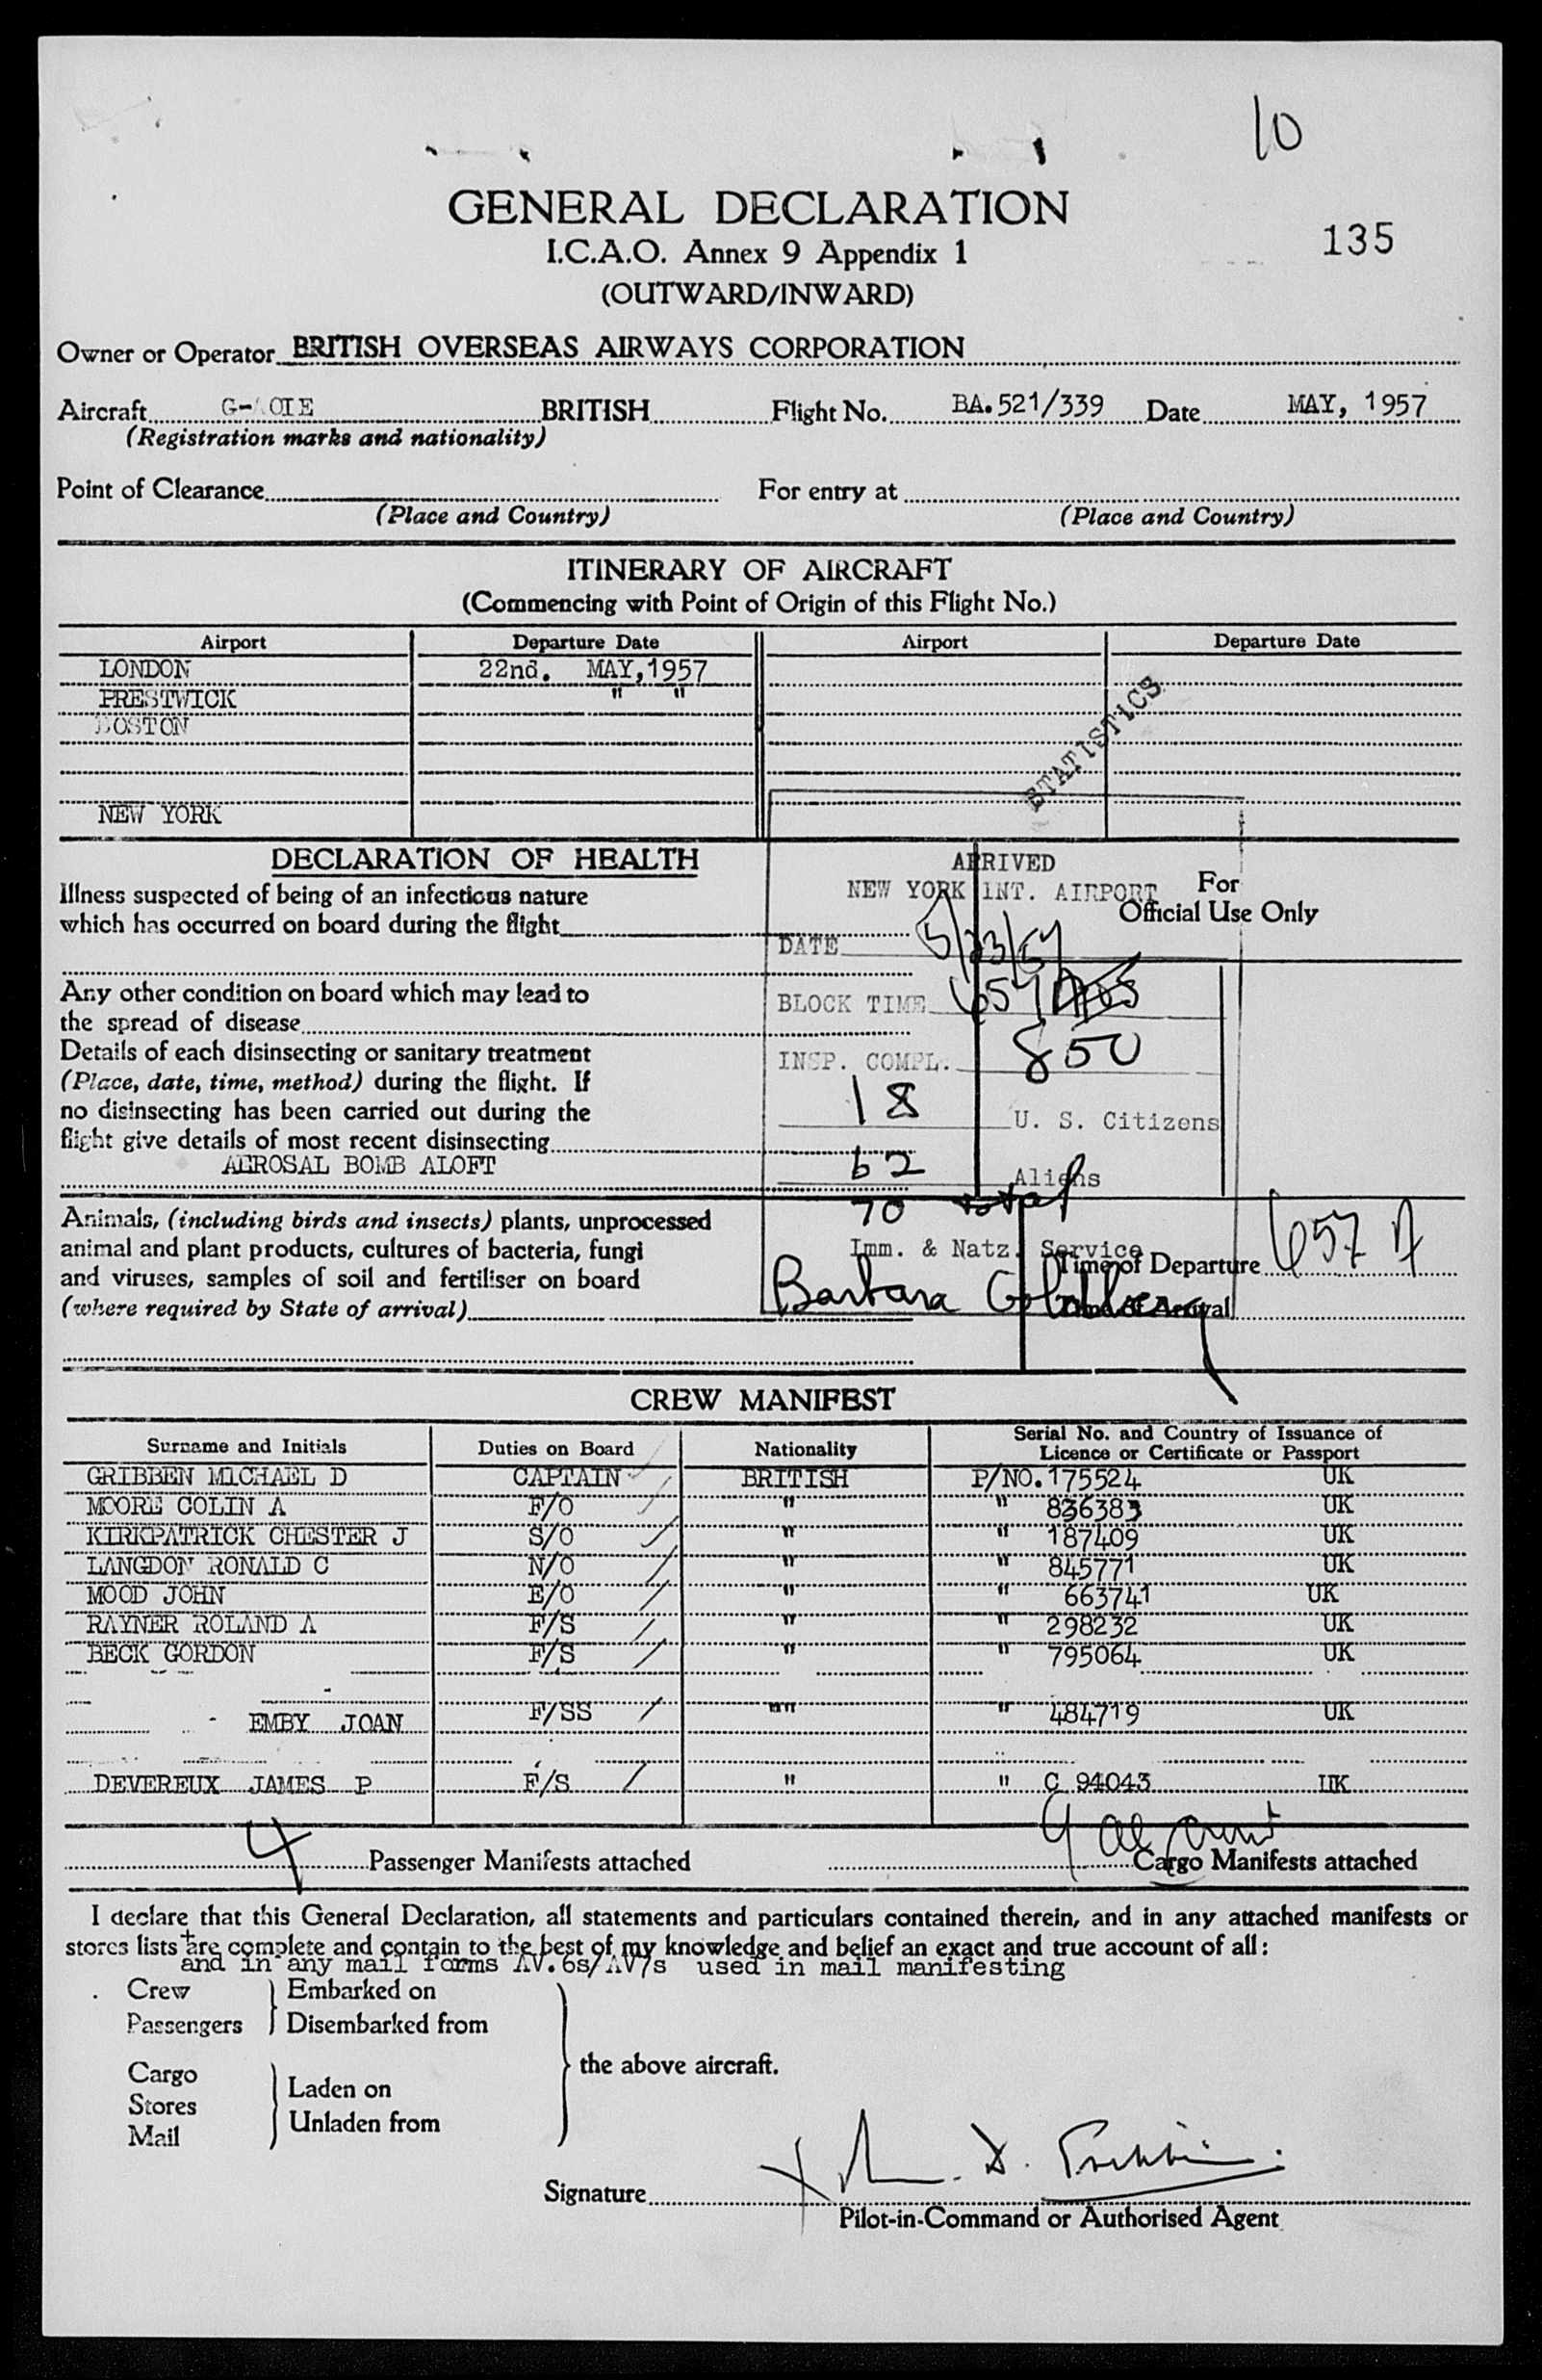 10
GENERAL DECLARATION
I.C.A.O. Annex 9 Appendix 1
135
(OUTWARD/INWARD)
Owner or Operator BRITISH OVERSEAS AIRWAYS CORPORATION
Aircraft G- OIE BRITISH Flight No. BA.521/339 Date MAY, 1957
(Registration marks and nationality)
Point of Clearance For entry at
(Place and Country) (Place and Country)
ITINERARY OF AIRCRAFT
(Commencing with Point of Origin of this Flight No.)
Airport Departure Date Airport Departure Date
LONDON 22nd. MAY,1957
PRESTWICK " "
BOSTON
STATISTICS
NEW YORK
DECLARATION OF HEALTH
Illness suspected of being of an infectious nature
which has occurred on board during the flight
Any other condition on board which may lead to
the spread of disease
Details of each disinsecting or sanitary treatment
(Place, date, time, method) during the flight. If
no disinsecting has been carried out during the
flight give details of most recent disinsecting
AEROSAL BOMB ALOFT
Animals, (including birds and insects) plants, unprocessed
animal and plant products, cultures of bacteria, fungi
and viruses, samples of soil and fertiliser on board
(where required by State of arrival)
ARRIVED
NEW YORK INT. AIRPORT
For
Official Use Only
DATE 5/23/57
BLOCK TIME 657
INSP. COMPL. 850
18 U. S. Citizens
62 Aliens
70 total
Imm. & Natz. Service
Barbara
Time of Departure 657 A
Time of Arrival
CREW MANIFEST
Surname and Initials Duties on Board Nationality Serial No. and Country of Issuance of
Licence or Certificate or Passport
GRIBBEN MICHAEL D CAPTAIN BRITISH P/NO.175524 UK
MOORE COLIN A F/O " " 836383 UK
KIRKPATRICK CHESTER J S/O " " 187409 UK
LANGDON RONALD C N/O " " 845771 UK
MOOD JOHN E/O " " 663741 UK
RAYNER ROLAND A F/S " " 298232 UK
BECK GORDON F/S " " 795064 UK
EMBY JOAN F/SS "" " 484719 UK
DEVEREUX JAMES P F/S " " C 94043 UK
4 Passenger Manifests attached Cargo Manifests attached
I declare that this General Declaration, all statements and particulars contained therein, and in any attached manifests or
stores lists + are complete and contain to the best of my knowledge and belief an exact and true account of all:
and in any mail forms AV.6s/AV7s used in mail manifesting
Crew Embarked on
Passengers Disembarked from
the above aircraft.
Cargo
Stores
Mail
Laden on
Unladen from
Signature
Pilot-in-Command or Authorised Agent